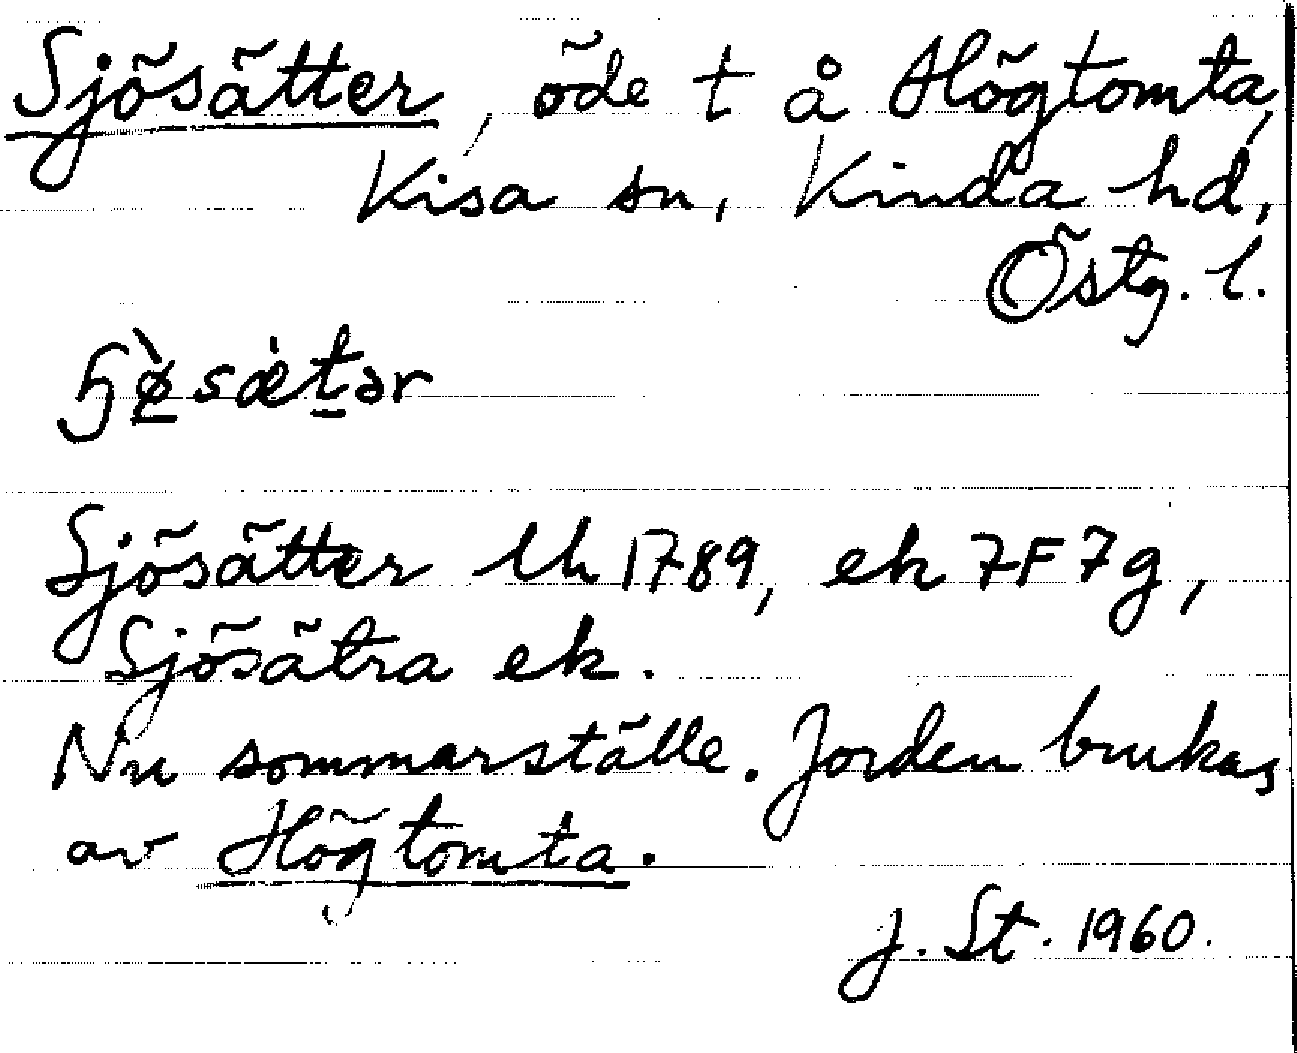 Sjösätter, öde t å Högtomta,
Kisa sn, Kinda hd,
Östg. l.
ɧø̀sæ̀tər
Sjösätter lh 1789, ek 7F7g,
Sjösätra ek.
Nu sommarställe. Jorden brukas
av Högtomta.
J. St. 1960.